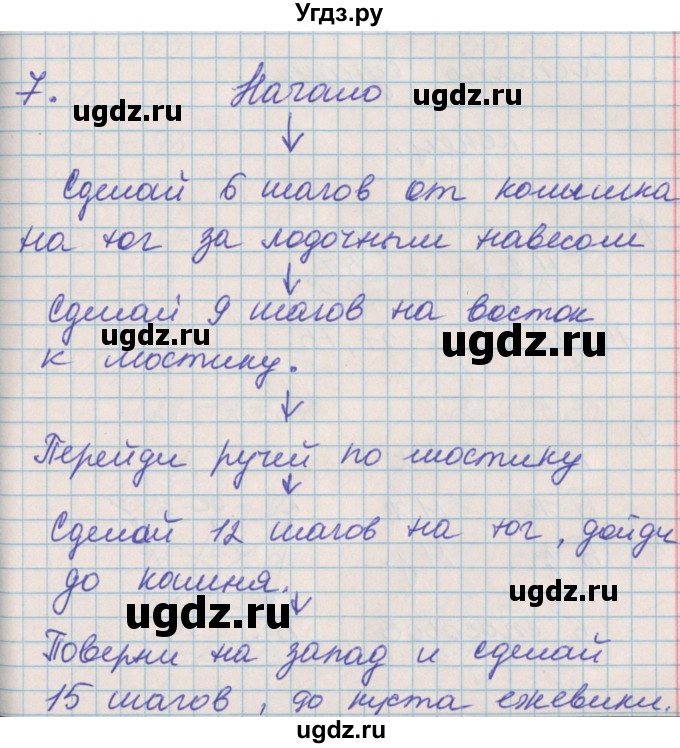 Угдз.ру
7. Начало
ugdz.ru
ugdz.ru
Сделай 6 шагов от колышка
на юг за лодочным навесом
Сделай 9 шагов на восток
ugdz.ru
ugdz.ru
к мостику.
Перейди ручей по мостику
Сделай 12 шагов на юг, дойди
до камня.
ugdz.ru
ugdz.ru
Поверни на запад и сделай
15 шагов, до куста ежевики.
ugdz.ru